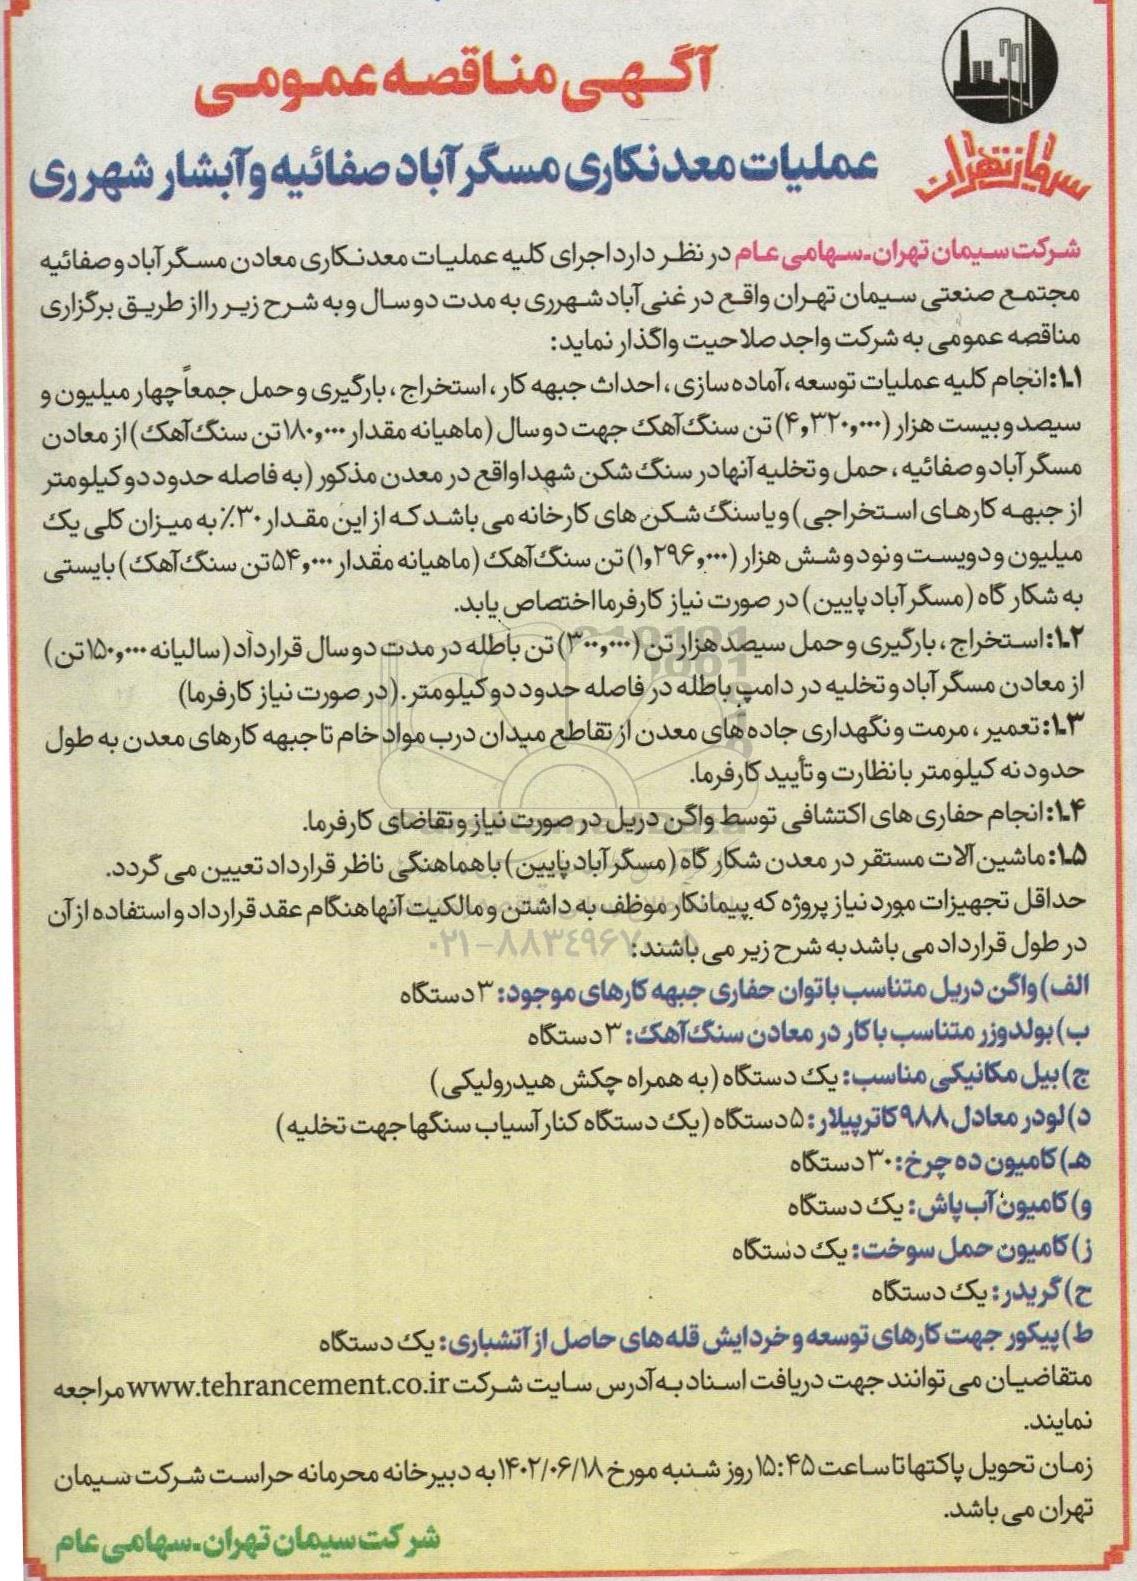 آگهی مناقصه عمومی
سیمان تهران
عملیات معدنکاری مسگرآباد صفائیه وآبشار شهرری
شرکت سیمان تهران-سهامی عام در نظر دارد اجرای کلیه عملیات معدنکاری معادن مسگرآباد و صفائیه
مجتمع صنعتی سیمان تهران واقع در غنی‌آباد شهرری به مدت دو سال و به شرح زیر را از طریق برگزاری
مناقصه عمومی به شرکت واجد صلاحیت واگذار نماید:
۱.۱: انجام کلیه عملیات توسعه، آماده سازی، احداث جبهه کار، استخراج، بارگیری و حمل جمعاً چهار میلیون و
سیصد و بیست هزار (۴,۳۲۰,۰۰۰) تن سنگ‌آهک جهت دو سال (ماهیانه مقدار ۱۸۰,۰۰۰ تن سنگ‌آهک) از معادن
مسگرآباد و صفائیه، حمل و تخلیه آنها در سنگ شکن شهدا واقع در معدن مذکور (به فاصله حدود دو کیلومتر
از جبهه کارهای استخراجی) و یا سنگ شکن های کارخانه می باشد که از این مقدار ۳۰٪ به میزان کلی یک
میلیون و دویست و نود و شش هزار (۱,۲۹۶,۰۰۰) تن سنگ‌آهک (ماهیانه مقدار ۵۴,۰۰۰ تن سنگ‌آهک) بایستی
به شکار گاه (مسگرآباد پایین) در صورت نیاز کارفرما اختصاص یابد.
۱.۲: استخراج، بارگیری و حمل سیصد هزار تن (۳۰۰,۰۰۰) تن باطله در مدت دو سال قرارداد (سالیانه ۱۵۰,۰۰۰ تن)
از معادن مسگرآباد و تخلیه در دامپ باطله در فاصله حدود دو کیلومتر. (در صورت نیاز کارفرما)
۱.۳: تعمیر، مرمت و نگهداری جاده های معدن از تقاطع میدان درب مواد خام تا جبهه کارهای معدن به طول
حدود نه کیلومتر با نظارت و تأیید کارفرما.
۱.۴: انجام حفاری های اکتشافی توسط واگن دریل در صورت نیاز و تقاضای کارفرما.
۱.۵: ماشین‌آلات مستقر در معدن شکار گاه (مسگرآباد پایین) با هماهنگی ناظر قرارداد تعیین می گردد.
حداقل تجهیزات مورد نیاز پروژه که پیمانکار موظف به داشتن و مالکیت آنها هنگام عقد قرارداد و استفاده از آن
در طول قرارداد می باشد به شرح زیر می باشند:
الف) واگن دریل متناسب با توان حفاری جبهه کارهای موجود: ۳ دستگاه
ب) بولدوزر متناسب با کار در معادن سنگ‌آهک: ۳ دستگاه
ج) بیل مکانیکی مناسب: یک دستگاه (به همراه چکش هیدرولیکی)
د) لودر معادل ۹۸۸ کاترپیلار: ۵ دستگاه (یک دستگاه کنار آسیاب سنگها جهت تخلیه)
هـ) کامیون ده چرخ: ۳۰ دستگاه
و) کامیون آب پاش: یک دستگاه
ز) کامیون حمل سوخت: یک دستگاه
ح) گریدر: یک دستگاه
ط) پیکور جهت کارهای توسعه و خردایش قله های حاصل از آتشباری: یک دستگاه
متقاضیان می توانند جهت دریافت اسناد به آدرس سایت شرکت www.tehrancement.co.ir مراجعه
نمایند.
زمان تحویل پاکتها تا ساعت ۱۵:۴۵ روز شنبه مورخ ۱۴۰۲/۰۶/۱۸ به دبیرخانه محرمانه حراست شرکت سیمان
تهران می باشد.
شرکت سیمان تهران-سهامی عام